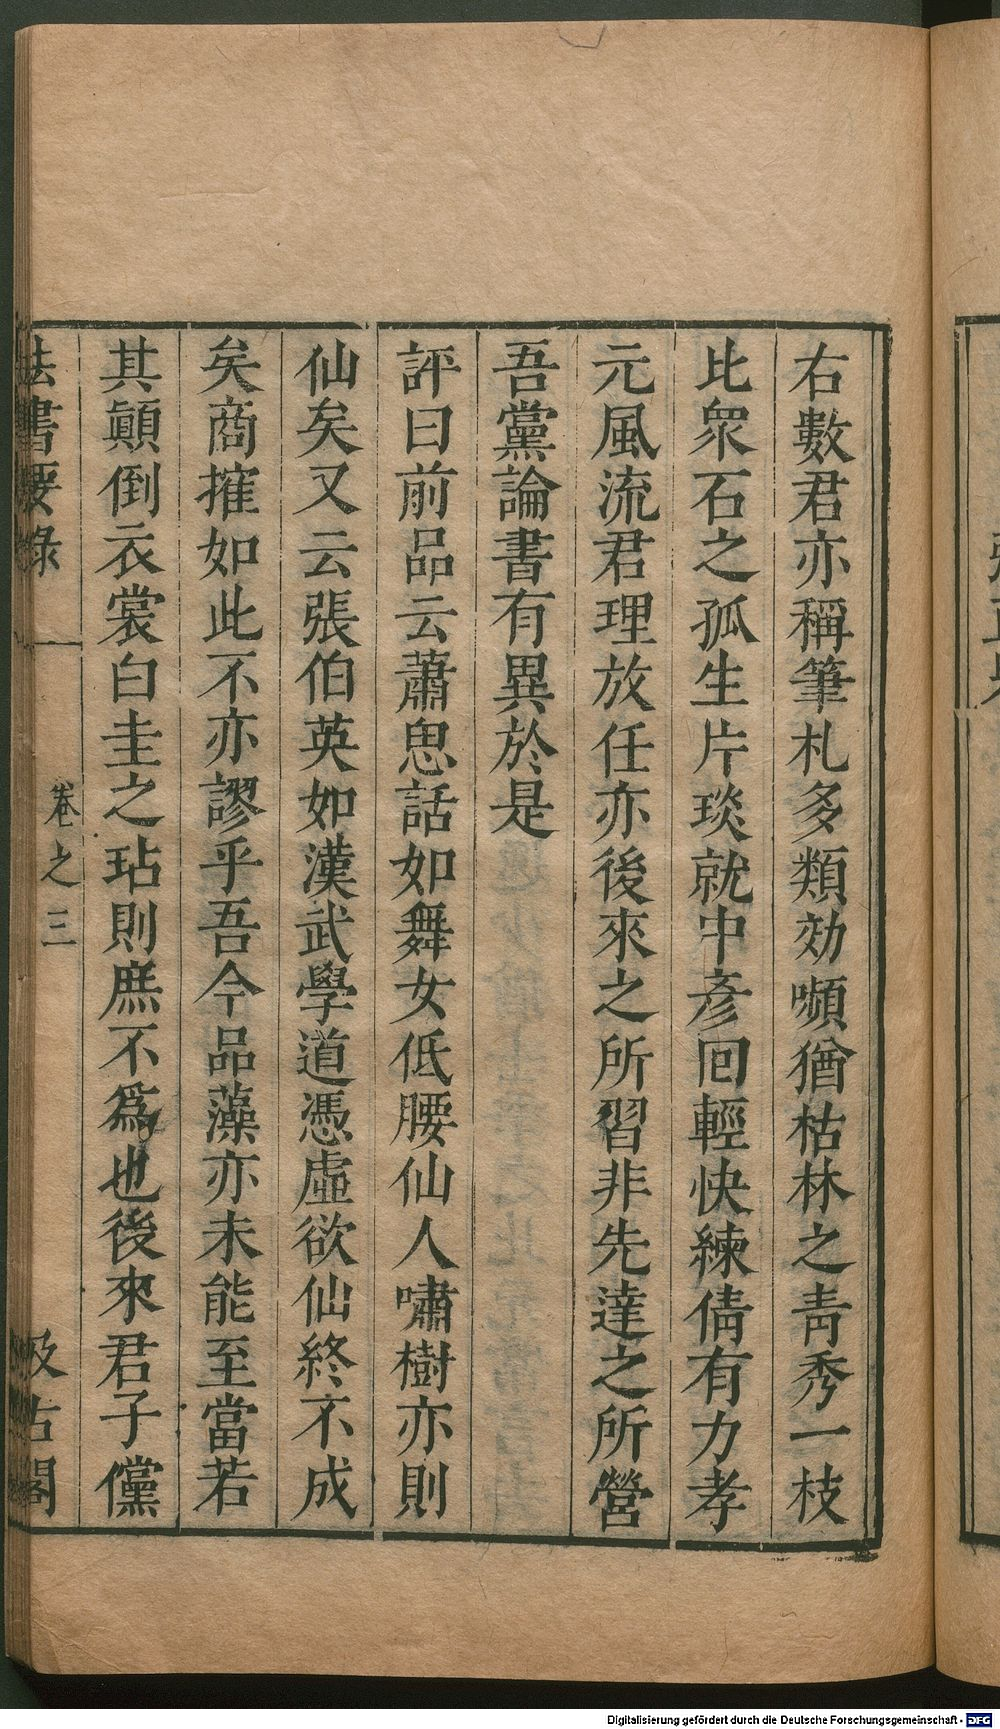 右數君亦稱筆札多類効嚬猶枯林之青秀一枝
比衆石之孤生片琰就中彥回輕快練倩有力孝
元風流君理放任亦後來之所習非先達之所營
吾黨論書有異於是
評曰前品云蕭思話如舞女低腰仙人嘯樹亦則
仙矣又云張伯英如漢武學道憑虛欲仙終不成
矣商搉如此不亦謬乎吾今品藻亦未能至當若
其顚倒衣裳白圭之玷則庶不爲也後來君子儻
法書要錄
卷之三
汲古閣
Digitalisierung gefördert durch die Deutsche Forschungsgemeinschaft - DFG